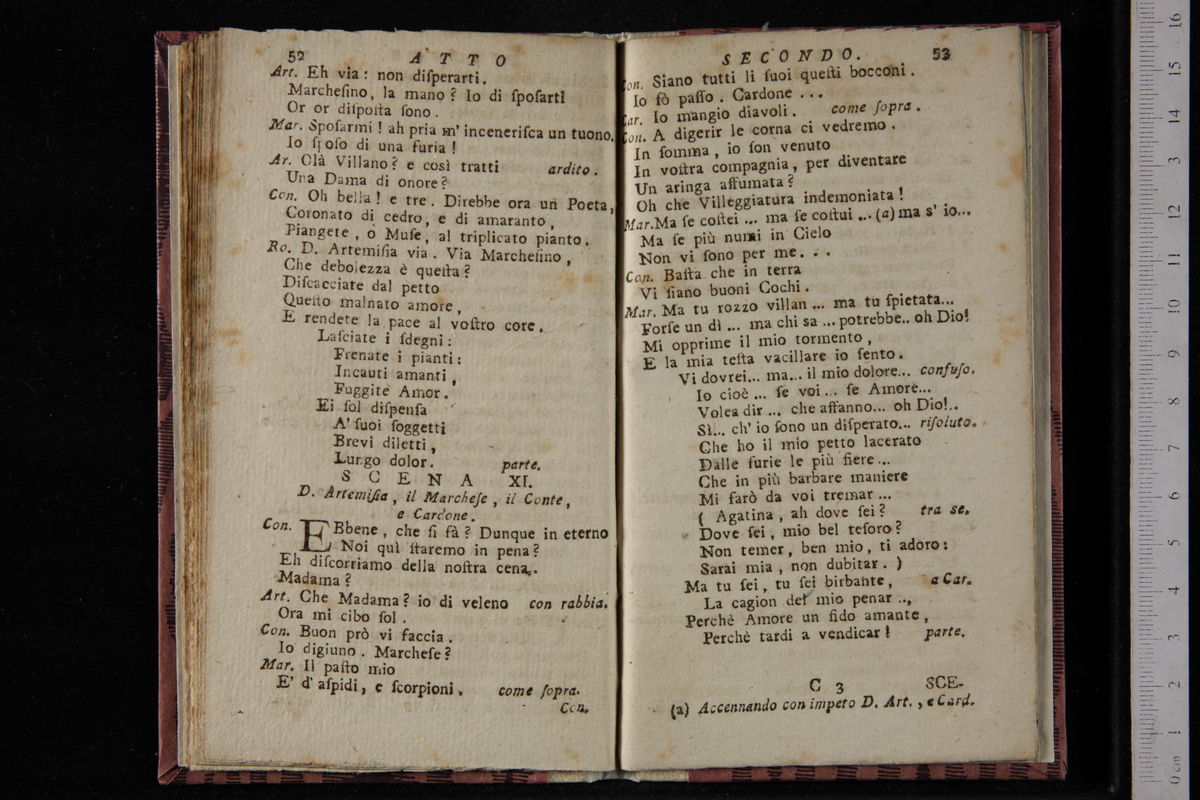 52 ATTO
Art. Eh via: non diſperarti.
Marcheſino, la mano? Io di ſpoſarti
Or or diſpoſta ſono.
Mar. Spoſarmi! ah pria m' inceneriſca un tuono.
Io ſpoſo di una furia!
Ar. Olà Villano? e così tratti ardito.
Una Dama di onore?
Con. Oh bella! e tre. Direbbe ora un Poeta,
Coronato di cedro, e di amaranto,
Piangete, o Muſe, al triplicato pianto.
Ro. D. Artemiſia via. Via Marcheſino,
Che debolezza è queſta?
Diſcacciate dal petto
Queſto malnato amore,
E rendete la pace al voſtro core.
Laſciate i ſdegni:
Frenate i pianti:
Incauti amanti,
Fuggite Amor.
Ei ſol diſpenſa
A' ſuoi ſoggetti
Brevi diletti,
Lungo dolor. parte.
SCENA XI.
D. Artemiſia, il Marcheſe, il Conte,
e Cardone.
Con. EBbene, che ſi fà? Dunque in eterno
Noi quì ſtaremo in pena?
Eh diſcorriamo della noſtra cena.
Madama?
Art. Che Madama? io di veleno con rabbia.
Ora mi cibo ſol.
Con. Buon prò vi faccia.
Io digiuno. Marcheſe?
Mar. Il paſto mio
E' d' aſpidi, e ſcorpioni. come ſopra.
Con.
SECONDO. 53
Con. Siano tutti li ſuoi queſti bocconi.
Io fò paſſo. Cardone ...
Car. Io mangio diavoli. come ſopra.
Con. A digerir le corna ci vedremo.
In ſomma, io ſon venuto
In voſtra compagnia, per diventare
Un aringa affumata?
Oh che Villeggiatura indemoniata!
Mar. Ma ſe coſtei ... ma ſe coſtui ... (a) ma s' io...
Ma ſe più numi in Cielo
Non vi ſono per me...
Con. Baſta che in terra
Vi ſiano buoni Cochi.
Mar. Ma tu rozzo villan ... ma tu ſpietata...
Forſe un dì ... ma chi sa ... potrebbe.. oh Dio!
Mi opprime il mio tormento,
E la mia teſta vacillare io ſento.
Vi dovrei... ma... il mio dolore... confuſo.
Io cioè ... ſe voi ... ſe Amore...
Volea dir ... che affanno... oh Dio!..
Sì... ch' io ſono un diſperato... riſoluto.
Che ho il mio petto lacerato
Dalle furie le più fiere...
Che in più barbare maniere
Mi farò da voi tremar ...
( Agatina, ah dove ſei? tra se.
Dove ſei, mio bel teſoro?
Non temer, ben mio, ti adoro:
Sarai mia, non dubitar. )
Ma tu ſei, tu ſei birbante, a Car.
La cagion del mio penar ..,
Perchè Amore un fido amante,
Perchè tardi a vendicar! parte.
C 3 SCE-
(a) Accennando con impeto D. Art., e Card.